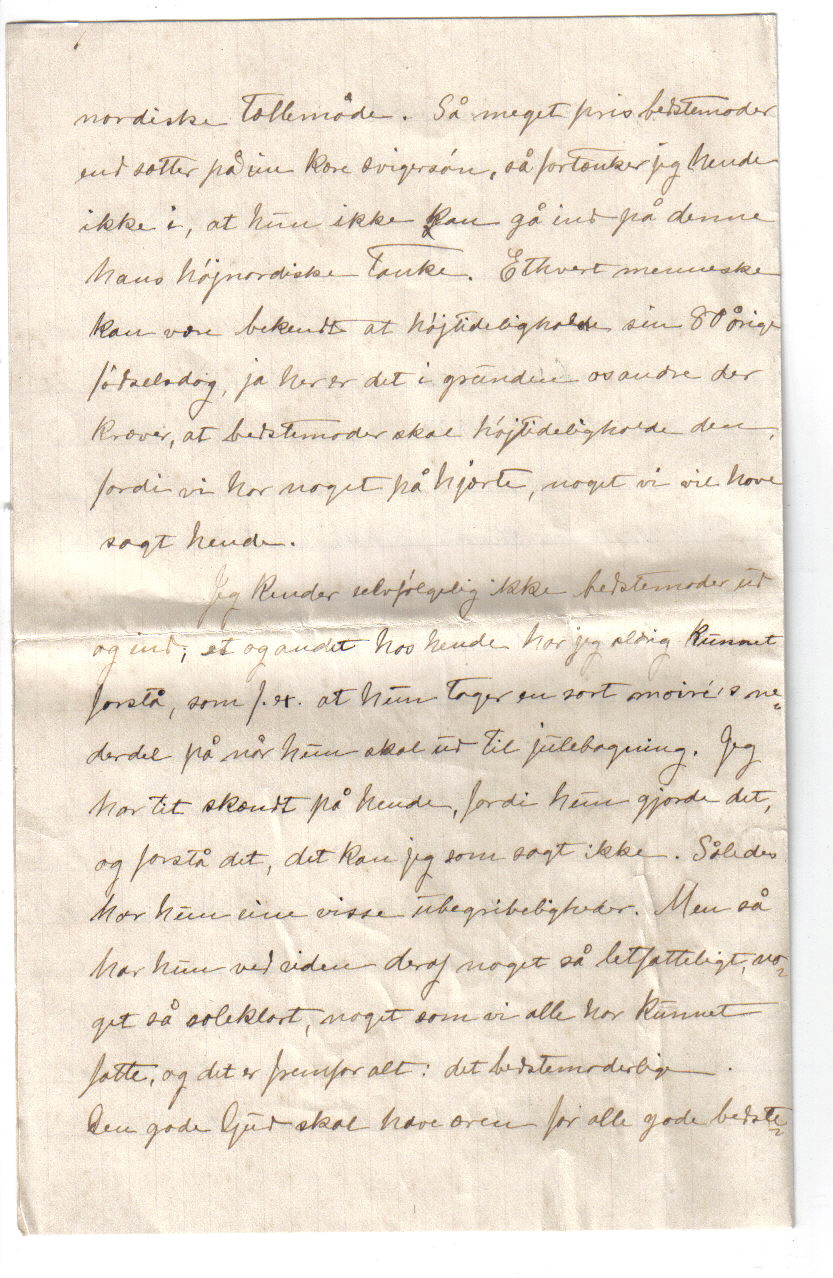 nordiske Tællemåde. Så meget pris bedstemoder
end sætter på sin kære svigersøn, så fortænker jeg hende
ikke i, at hun ikke kan gå ind på denne
hans højnordiske Tanke. Ethvert menneske
kan være bekendt at højtideligholde sin 80 årige
fødselsdag, ja her er det i grunden os andre der
kræver, at bedstemoder skal højtideligholde den,
fordi vi har noget på hjærte, noget vi vil have
sagt hende.
Jeg kender selvfølgelig ikke bedstemoder ud
og ind; et og andet hos hende har jeg aldrig kunnet
forstå, som f. ex. at hun tager en sort moiré's ne=
derdel på når hun skal ud til julebagning. Jeg
har tit skændt på hende, fordi hun gjorde det,
og forstå det, det kan jeg som sagt ikke. Således
har hun sine visse ubegribeligheder. Men så
har hun ved siden deraf noget så letfatteligt, no=
get så soleklart, noget som vi alle har kunnet
fatte, og det er fremfor alt: det bedstemoderlige.
Den gode Gud skal have æren for alle gode bedste=